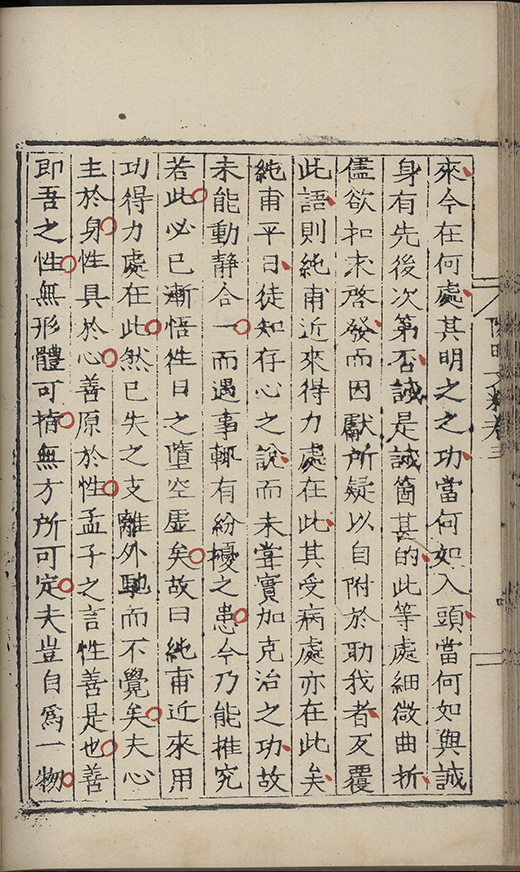 來今在何處其明之之功當何如入頭當何如與誠
身有先後次第否誠是誠箇甚的此等處細微曲折
儘欲扣求啓發而因獻所疑以自附於助我者反覆
此語則純甫近來得力處在此其受病處亦在此矣
純甫平日徒知存心之說而未嘗實加克治之功故
未能動靜合一而遇事輒有紛擾之患今乃能推究
若此必已漸悟徃日之墮空虛矣故曰純甫近來用
功得力處在此然已失之支離外馳而不覺矣夫心
主於身性具於心善原於性孟子之言性善是也善
即吾之性無形體可指無方所可定夫豈自爲一物
陽明文粹卷